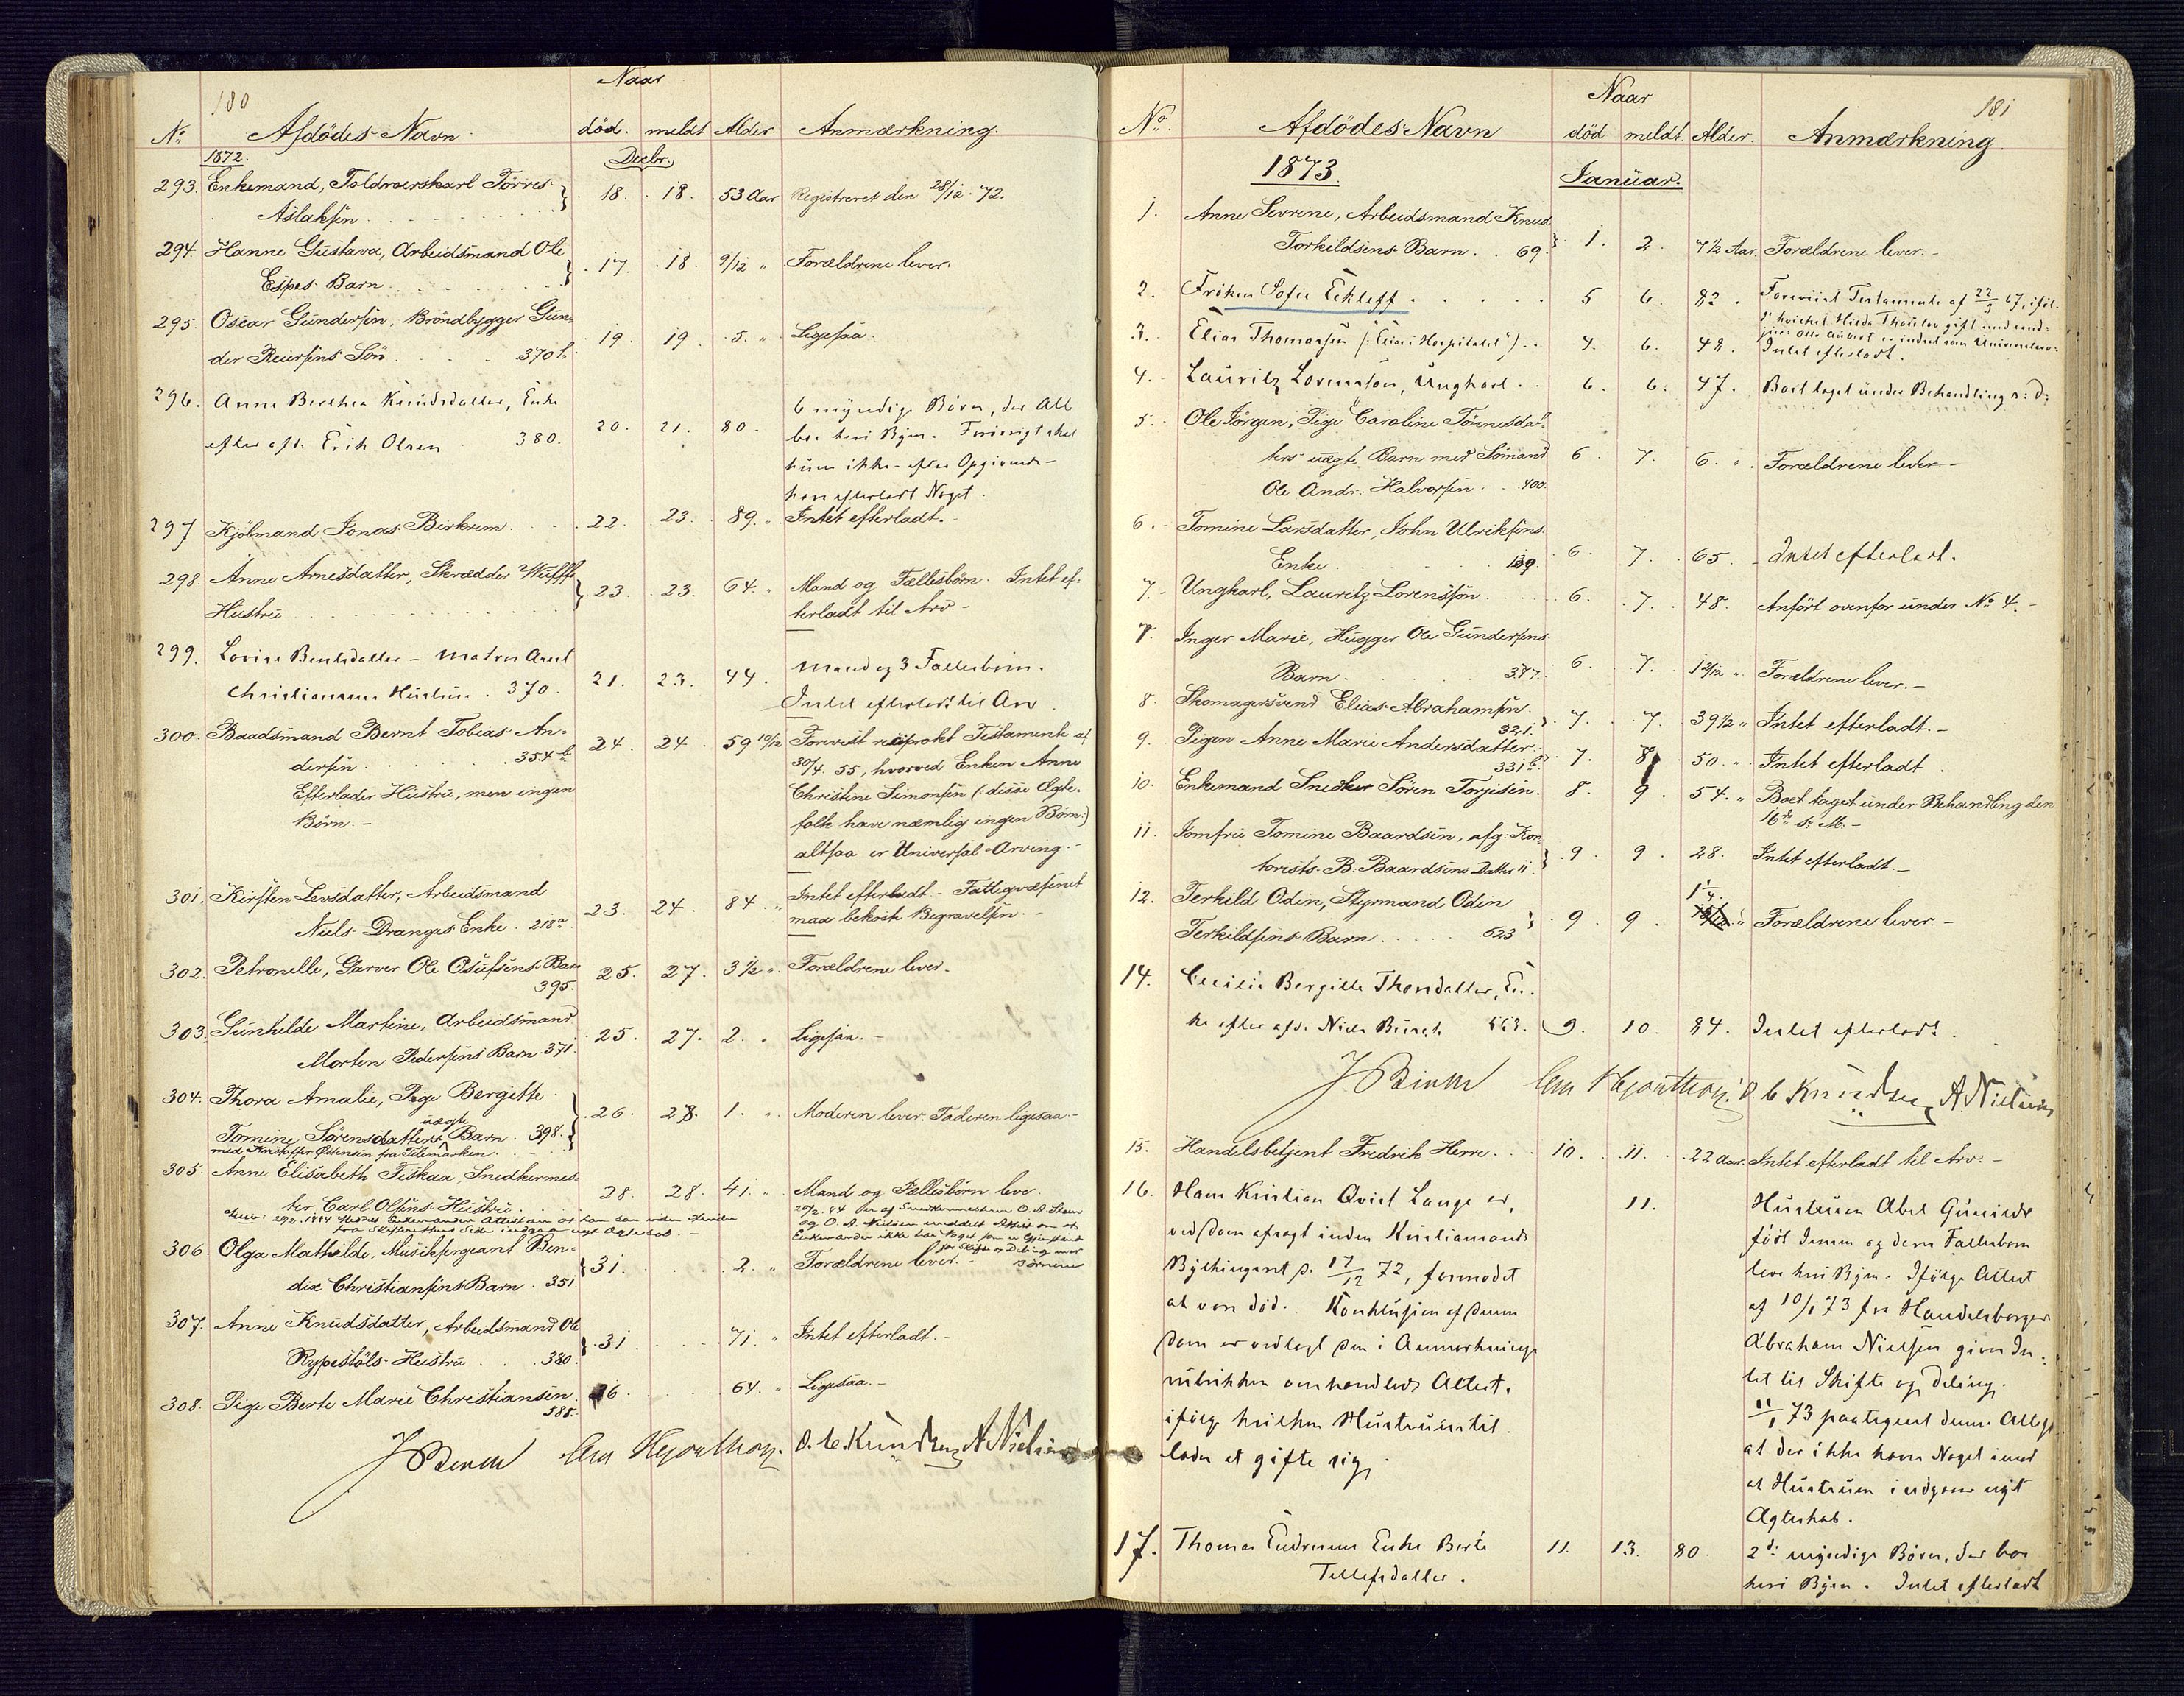 180
Naar
No Afdödes Navn. död. meldt Alder. Anmærkning.
1872. Decbr.
293. Enkemand, Toldroerskarl Törres
Aslaksen 18. 18. 53 Aar Registreret den 28/12. 72.
294. Hanne Gustava, Arbeidsmand Ole
Espes Barn 17. 18. 9/12 " Forældrene lever.
295. Oscar Gundersen, Bröndbygger Gun-
der Reiersens Sön 370 b. 19. 19. 5. " Ligesaa.
296. Anne Berthea Knudsdatter, Enke
efter afd. Erik Olsen 380. 20. 21. 80.
6 myndige Börn, der alle
bor heri Byen. Forövrigt skal
hun ikke efter Opgivende
have efterladt Noget.
297 Kjöbmand Jonas Birkrem. 22. 23. 89. " Intet efterladt.
298. Anne Arnesdatter, Skrædder Wulffs
Hustru 23. 23. 64. " Mand og Fællesbörn. Intet ef-
terladt til Arv
299. Lovise Bentsdatter - Matros Axel
Christiansens Hustru. 370. 21. 23. 44. Mand og 3 Fællesbörn.
Intet efterladt til Arv.
300. Baadsmand Bernt Tobias An-
dersen 354 b. 24. 24. 59 10/12
Efterlader Hustru, men ingen
Börn.
Forevist reciprokt Testament af
30/4. 55, hvorved Enken Anne
Christine Simonsen (: disse Ægte-
folk have næmlig ingen Börn:)
altsaa er Universal-Arving.
301. Kirsten Levsdatter, Arbeidsmand
Niels Dranges Enke. 218 a 23. 24. 84. " Intet efterladt - Fattigvæsenet
maa bekoste Begravelsen.
302. Petronelle, Garver Ole Osufsens Barn
395. 25. 27. 3 1/2 " Forældrene lever.
303. Gunhilde Martine, Arbeidsmand
Morten Pedersens Barn 371. 25. 27. 2. " Ligesaa.
304. Thora Amalie, Pige Bergitte
Tomine Sörensdatters uægte Barn. 398. 26. 28. 1. " Moderen lever. Faderen ligesaa.
med Kristoffer Östensen fra Telemarken.
305. Anne Elisabeth Fiskaa, Snedkermes-
ter Carl Olsens Hustru. 28. 28. 41. " Mand og Fællesbörn leve.
306. Olga Mathilde, Musiksergeant Ben-
dix Christiansens Barn. 351. 31. 2. " Forældrene lever.
307. Anne Knudsdatter, Arbeidsmand Ole
Rypestöls Hustru 380. 31. 71. " Intet efterladt.
308. Pige Berte Marie Christiansen.
585. 26. 64. " Ligesaa.
O. C. Knudsen A Nielsen
181
Naar
No. Afdödes Navn död meldt. Alder. Anmærkning.
1873. Januar.
1. Anne Sevrine, Arbeidsmand Knud
Torkildsens Barn. 69. 1. 2. 7 1/2 Aar. Forældrene lever.
2. Fröken Sofie Eckleff 5 6. 82. Forevist Testamente af 22/3 67, iföl-
ge hvilket Hilda Thaulow gift med cand:
3. Elias Thomassen (: "Elias i Hospitalet") 4. 6. 48. Intet efterladt.
4. Lauritz Lorentson, Ungkarl 6. 6. 47. Boet taget under Behandling s: D:
5. Ole Jörgen, Pige Caroline Tönnesdat-
ters uægte Barn med Sömand 6. 7. 6. " Forældrene lever
Ole Andr. Halvorsen 400.
6. Tomine Larsdatter, John Ulriksens
Enke 139. 6. 7. 65. Intet efterladt.
7. Ungkarl, Lauritz Lorenssön 6. 7. 48. Anfört ovenfor under No 4.
7. Inger Marie, Hugger Ole Gundersens
Barn. 377. 6. 7. 1 2/12 " Forældrene lever.
8. Skomagersvend Elias Abrahamsen.
321. 7. 7. 39 1/2 " Intet efterladt.
9. Pigen Anne Marie Andersdatter
331 b. 7. 8 50. " Intet efterladt.
10. Enkemand Snedker Sören Torgisen. 8. 9. 54. " Boet taget under Behandling den
16de d. M.
11. Jomfru Tomine Baardsen, afg. Kon-
torists B. Baardsens Datter 11. 9. 9. 28. Intet efterladt.
12. Terkild Odin, Styrmand Odin
Terkildsens Barn 623 9 9. 1 1/4. " Forældrene lever.
14. Cecilie Bergitte Thorsdatter, En-
ke efter afd. Niels Bunch 663. 9. 10. 84. Intet efterladt.
O. C. Knudsen A Nielsen
15. Handelsbetjent Fredrik Herre 10. 11. 22 Aar. Intet efterladt til Arv.
16. Hans Kristian Qvist Lange er, 11.
ved Dom afsagt inden Kristiansands
Bythingsret d. 17/12 72, formodet
at være död. Konklusion af denne
Dom er vedlagt den i Anmærknings-
rubrikken omhandlede Attest,
ifölge hvilken Hustruen til-
lades at gifte sig.
Hustruen Abel Gunilde
födt Jensen og deres Fællesbörn
leve heri Byen. Ifölge Attest
af 10/1 73 fra Handelsborger
Abraham Nielsen gives In-
tet til Skifte og Deling.
11/1 73 paategnet denne Attest
at der ikke haves Noget imod
at Hustruen indgaar nyt
Ægteskab.
17. Thomas Endresens Enke Berte
Tellefsdatter. 11. 13. 80. 2de myndige Börn, der bor
heri Byen. Intet efterladt